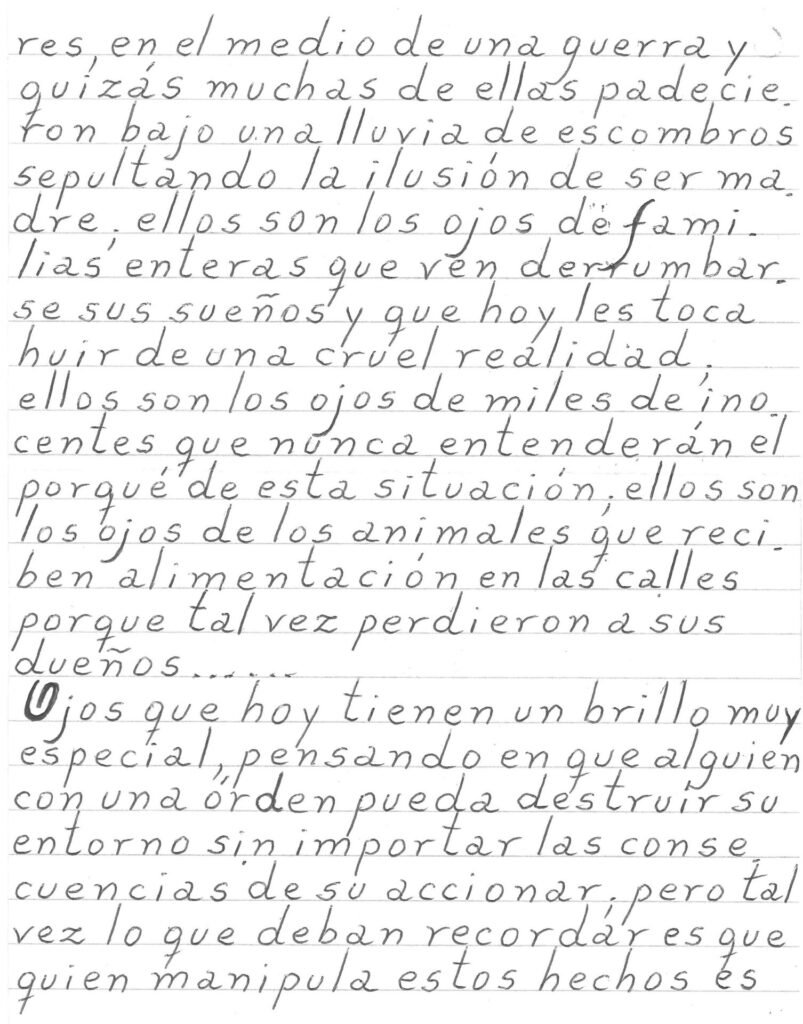 res, en el medio de una guerra y
quizás muchas de ellas padecie-
ron bajo una lluvia de escombros
sepultando la ilusión de ser ma-
dre; ellos son los ojos de fami-
lias enteras que ven derrumbar-
se sus sueños y que hoy les toca
huir de una cruel realidad;
ellos son los ojos de miles de ino-
centes que nunca entenderán el
porqué de esta situación; ellos son
los ojos de los animales que reci-
ben alimentación en las calles
porque tal vez perdieron a sus
dueños......
Ojos que hoy tienen un brillo muy
especial, pensando en que alguien
con una órden pueda destruir su
entorno sin importar las conse-
cuencias de su accionar; pero tal
vez lo que deban recordár es que
quien manipula estos hechos es